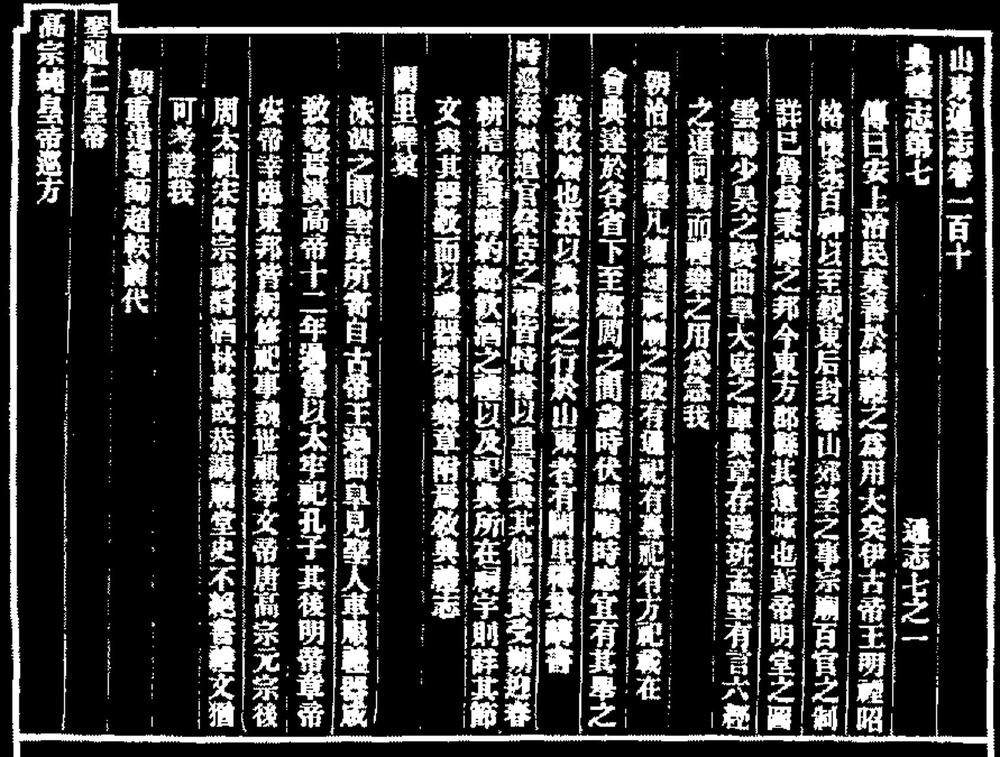 山東通志卷一百十
典禮志第七　通志七之一
傳曰安上治民莫善於禮禮之爲用大矣伊古帝王明禋昭
格懷柔百神以至覲東后封泰山郊望之事宗廟百官之制
詳已魯爲秉禮之邦今東方郡縣其遺墟也黃帝明堂之圖
雲陽少昊之陵曲阜大庭之庫典章存焉班孟堅有言六經
之道同歸而禮樂之用爲急我
朝治定制禮凡壇壝祠廟之設有通祀有專祀有方祀載在
會典遂於各省下至鄉閭之間歲時伏臘順時應宜有其舉之
莫敢廢也茲以典禮之行於山東者有闕里釋奠講書
時巡泰嶽遣官祭告之禮皆特書以重典其他慶賀受朝迎春
耕耤救護講約鄉飲酒之禮以及祀典所在祠宇則詳其節
文與其器數而以禮器樂舞樂章附焉敘典禮志
闕里釋奠
洙泗之間聖蹟所寄自古帝王過曲阜見聖人車服禮器咸
致敬焉漢高帝十二年過魯以太牢祀孔子其後明帝章帝
安帝幸臨東邦皆躬修祀事魏世祖孝文帝唐高宗元宗後
周太祖宋眞宗或得酒林墓或恭謁廟堂史不絕書禮文猶
可考證我
朝重道尊師超軼前代
聖祖仁皇帝
高宗純皇帝巡方